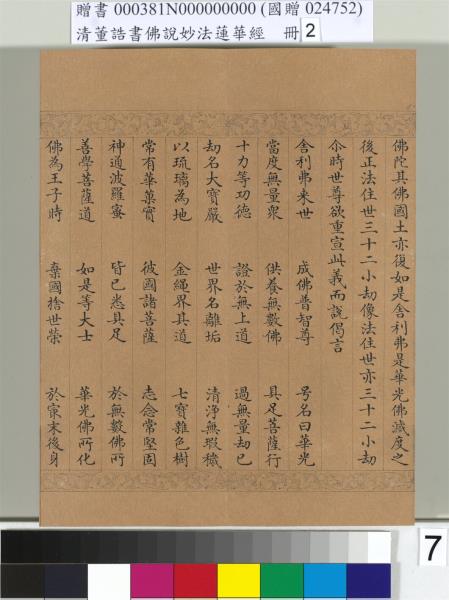 贈書 000381N000000000 (國贈 024752)
清董誥書佛說妙法蓮華經 冊 2
佛陀其佛國土亦復如是舍利弗是華光佛滅度之
後正法住世三十二小劫像法住世亦三十二小劫
尒時世尊欲重宣此義而說偈言
舍利弗来世 成佛普智尊 号名曰華光
當度無量衆 供養無數佛 具足菩薩行
十力等功德 證於無上道 過無量劫已
劫名大寶嚴 世界名離垢 清淨無瑕穢
以琉璃為地 金繩界其道 七寶雜色樹
常有華菓實 彼國諸菩薩 志念常堅固
神通波羅蜜 皆已悉具足 於無數佛所
善學菩薩道 如是等大士 華光佛所化
佛為王子時 棄國捨世榮 於宷末後身
7